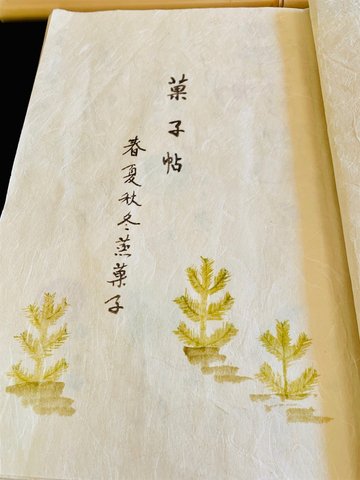 菓子帖
春夏秋冬蒸菓子